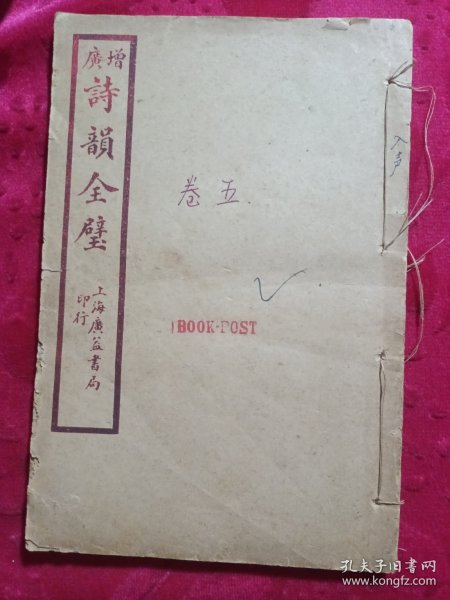 增廣
詩韻全璧
上海廣益書局
印行
卷五
入声
BOOK-POST
孔夫子旧书网
www.kongfz.com